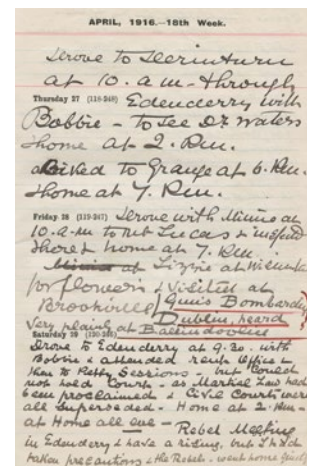 APRIL, 1916.—18th Week.
Drove to
at 10. a.m - through
Thursday 27 (118-248) Edenderry with
Bobbie - to see Dr Waters
home at 2. P.m.
to Grange at 6. P.m.
home at 7. P.m.
Friday 28 (119-247) Drove with Minnie at
10. a.m to Mt Lucas &
there & home at 7. P.m.
at Lizzie at
for flowers & visited at
Brookville / Guns Bombarding
Dublin, heard
Very plainly at Ballindoolin
Saturday 29 (120-246)
Drove to Edenderry at 9.30. with
Bobbie & attended rent office &
then to Petty Sessions - but could
not hold Court - as Martial Law had
been proclaimed & Civil Courts were
all superseded - Home at 2. P.m -
at Home all eve - Rebel Meeting
in Edenderry & have a rising, but
taken precautions & the Rebels . went home